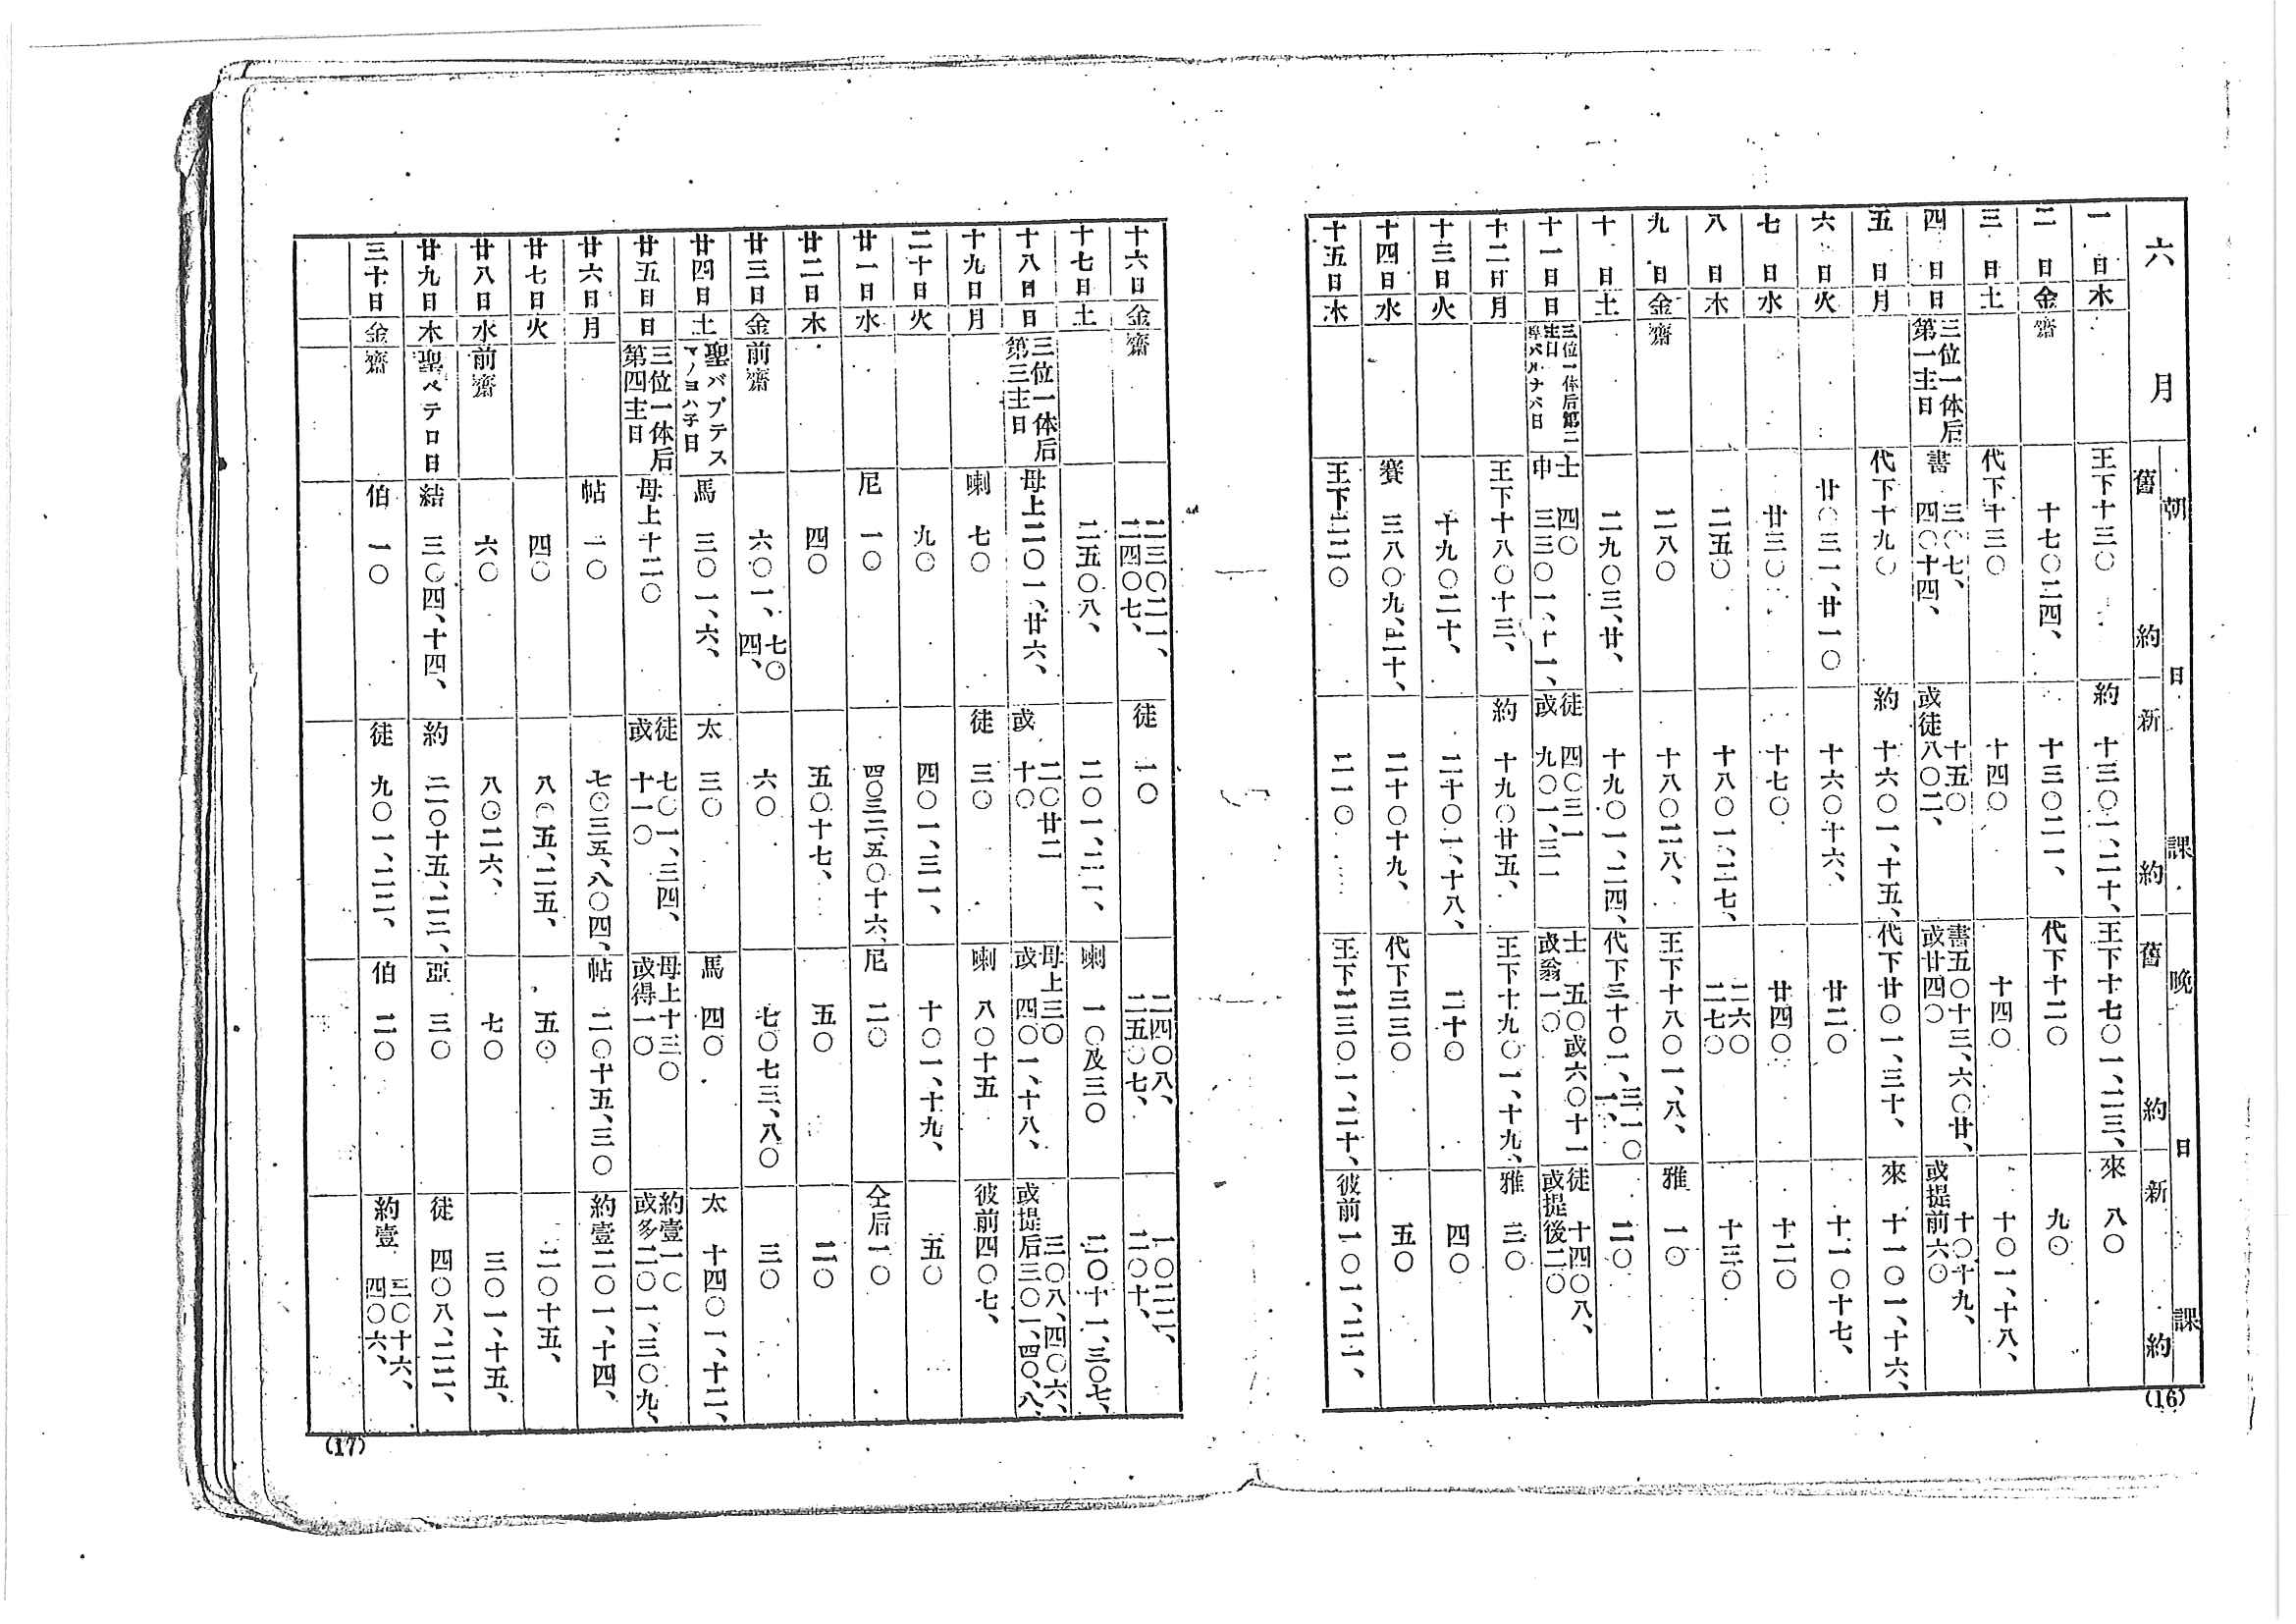 六月
朝日課 晩日課
舊約 新約 舊約 新約
一日 木 王下十三〇 約 十三〇一、二十、 王下十七〇一、二三、 來 八〇
二日 金 齋 十七〇二四、 十三〇二一、 代下十二〇 九〇
三日 土 代下十三〇 十四〇 十四〇 十〇一、十八、
四日 日 三位一体后第一主日 書 三〇七、四〇十四、 十五〇 或徒八〇二、 書五〇十三、六〇廿、 或廿四〇 十〇十九、 或提前六〇
五日 月 代下十九〇 約 十六〇一、十五、 代下廿〇一、三十、 來 十一〇一、十六、
六日 火 廿〇三一、廿一〇 十六〇十六、 廿二〇 十一〇十七、
七日 水 廿三〇 十七〇 廿四〇 十二〇
八日 木 二五〇 十八〇一、二七、 二六〇 二七〇 十三〇
九日 金 齋 二八〇 十八〇二八、 王下十八〇一、八、 雅 一〇
十日 土 二九〇三、廿、 十九〇一、二四、 代下三十〇一、三一〇一、 二〇
十一日 日 三位一体后第二主日 士 四〇 申 三三〇一、十一、 徒 四〇三一 或 九〇一、三一 士 五〇或六〇十一 或箴一〇 徒 十四〇八、 或提後二〇
十二日 月 王下十八〇十三、 約 十九〇廿五、 王下十九〇一、十九、 雅 三〇
十三日 火 十九〇二十、 二十〇一、十八、 二十〇 四〇
十四日 水 賽 三八〇九、二十、 二十〇十九、 代下三三〇 五〇
十五日 木 王下二二〇 二一〇 王下二三〇一、二十、 彼前一〇一、二一、
(16)
十六日 金 齋 二三〇二一、二四〇七、 徒 一〇 二四〇八、二五〇七、 一〇二二、二〇十、
十七日 土 二五〇八、 二〇一、二一、 喇 一〇及三〇 二〇十一、三〇七、
十八日 日 三位一体后第三主日 母上二〇一、廿六、 二〇廿二 或 十〇 母上三〇 或 四〇一、十八、 三〇八、四〇六、 或提后三〇一、四〇八、
十九日 月 喇 七〇 徒 三〇 喇 八〇十五 彼前四〇七、
二十日 火 九〇 四〇一、三一、 十〇一、十九、 五〇
廿一日 水 尼 一〇 四〇三二、五〇十六、 尼 二〇 仝后一〇
廿二日 木 四〇 五〇十七、 五〇 二〇
廿三日 金 前齋 六〇一、七〇四、 六〇 七〇七三、八〇 三〇
廿四日 土 聖バプテスマノヨハ子日 馬 三〇一、六、 太 三〇 馬 四〇 太 十四〇一、十二、
廿五日 日 三位一体后第四主日 母上十二〇 徒 七〇一、三四、 或 十一〇 母上十三〇 或得一〇 約壹一〇 或多二〇一、三〇九、
廿六日 月 帖 一〇 七〇三五、八〇四、 帖 二〇十五、三〇 約壹二〇一、十四、
廿七日 火 四〇 八〇五、二五、 五〇 二〇十五、
廿八日 水 前齋 六〇 八〇二六、 七〇 三〇一、十五、
廿九日 木 聖ペテロ日 結 三〇四、十四、 約 二一〇十五、二二、 亞 三〇 徒 四〇八、二二、
三十日 金 齋 伯 一〇 徒 九〇一、二二、 伯 二〇 約壹 三〇十六、四〇六、
(17)